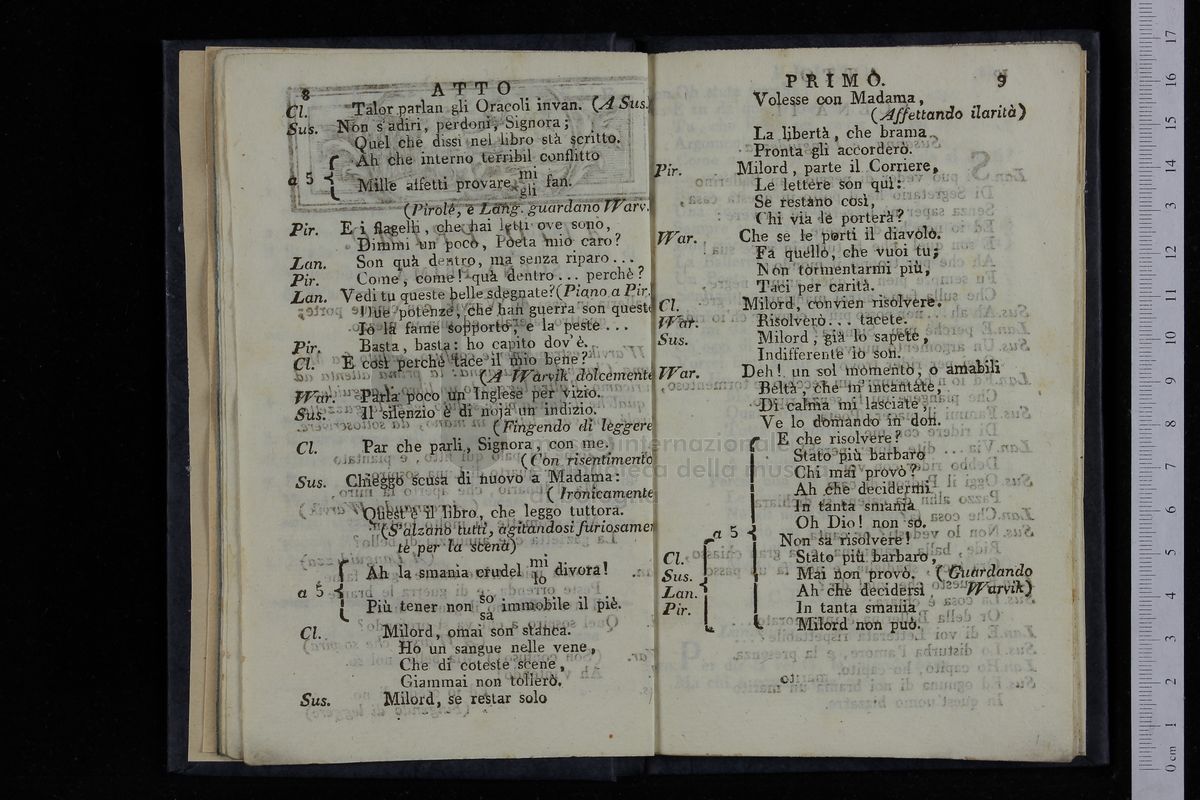 8 ATTO
Cl. Talor parlan gli Oracoli invan. (A Sus.
Sus. Non s'adiri, perdoni, Signora;
Quel che dissi nel libro stà scritto.
Ah che interno terribil conflitto
a 5 Mille affetti provare mi fan.
gli
(Pirolè, e Lang. guardano Warv.
Pir. E i flagelli, che hai letti ove sono,
Dimmi un poco, Poeta mio caro?
Lan. Son quà dentro, ma senza riparo...
Pir. Come, come! quà dentro... perchè?
Lan. Vedi tu queste belle sdegnate? (Piano a Pir.
Due potenze, che han guerra son queste
Io la fame sopporto, e la peste...
Pir. Basta, basta: ho capito dov'è.
Cl. E così perchè tace il mio bene?
(A Warvik dolcemente
War. Parla poco un Inglese per vizio.
Sus. Il silenzio è di noja un indizio.
(Fingendo di leggere
Cl. Par che parli, Signora, con me.
(Con risentimento
Sus. Chieggo scusa di nuovo a Madama:
(Ironicamente
Quest'è il libro, che leggo tuttora.
(S'alzano tutti, agitandosi furiosamen
te per la scena)
Ah la smania crudel mi divora!
lo
a 5
Più tener non so immobile il piè.
sa
Cl. Milord, omai son stanca.
Ho un sangue nelle vene,
Che di coteste scene,
Giammai non tollerò.
Sus. Milord, se restar solo
PRIMO. 9
Volesse con Madama,
(Affettando ilarità)
La libertà, che brama
Pronta gli accorderò.
Pir. Milord, parte il Corriere,
Le lettere son quì:
Se restano così,
Chi via le porterà?
War. Che se le porti il diavolo.
Fa quello, che vuoi tu;
Non tormentarmi più,
Taci per carità.
Cl. Milord, convien risolvere.
War. Risolverò... tacete.
Sus. Milord, già lo sapete,
Indifferente io son.
War. Deh! un sol momento, o amabili
Beltà, che m'incantate,
Di calma mi lasciate,
Ve lo domando in don.
E che risolvere?
Stato più barbaro
Chi mai provò?
Ah che decidermi
In tanta smania
Oh Dio! non so.
a 5 Non sa risolvere!
Cl. Stato più barbaro,
Sus. Mai non provò. (Guardando
Lan. Ah che decidersi Warvik)
Pir. In tanta smania
Milord non può.